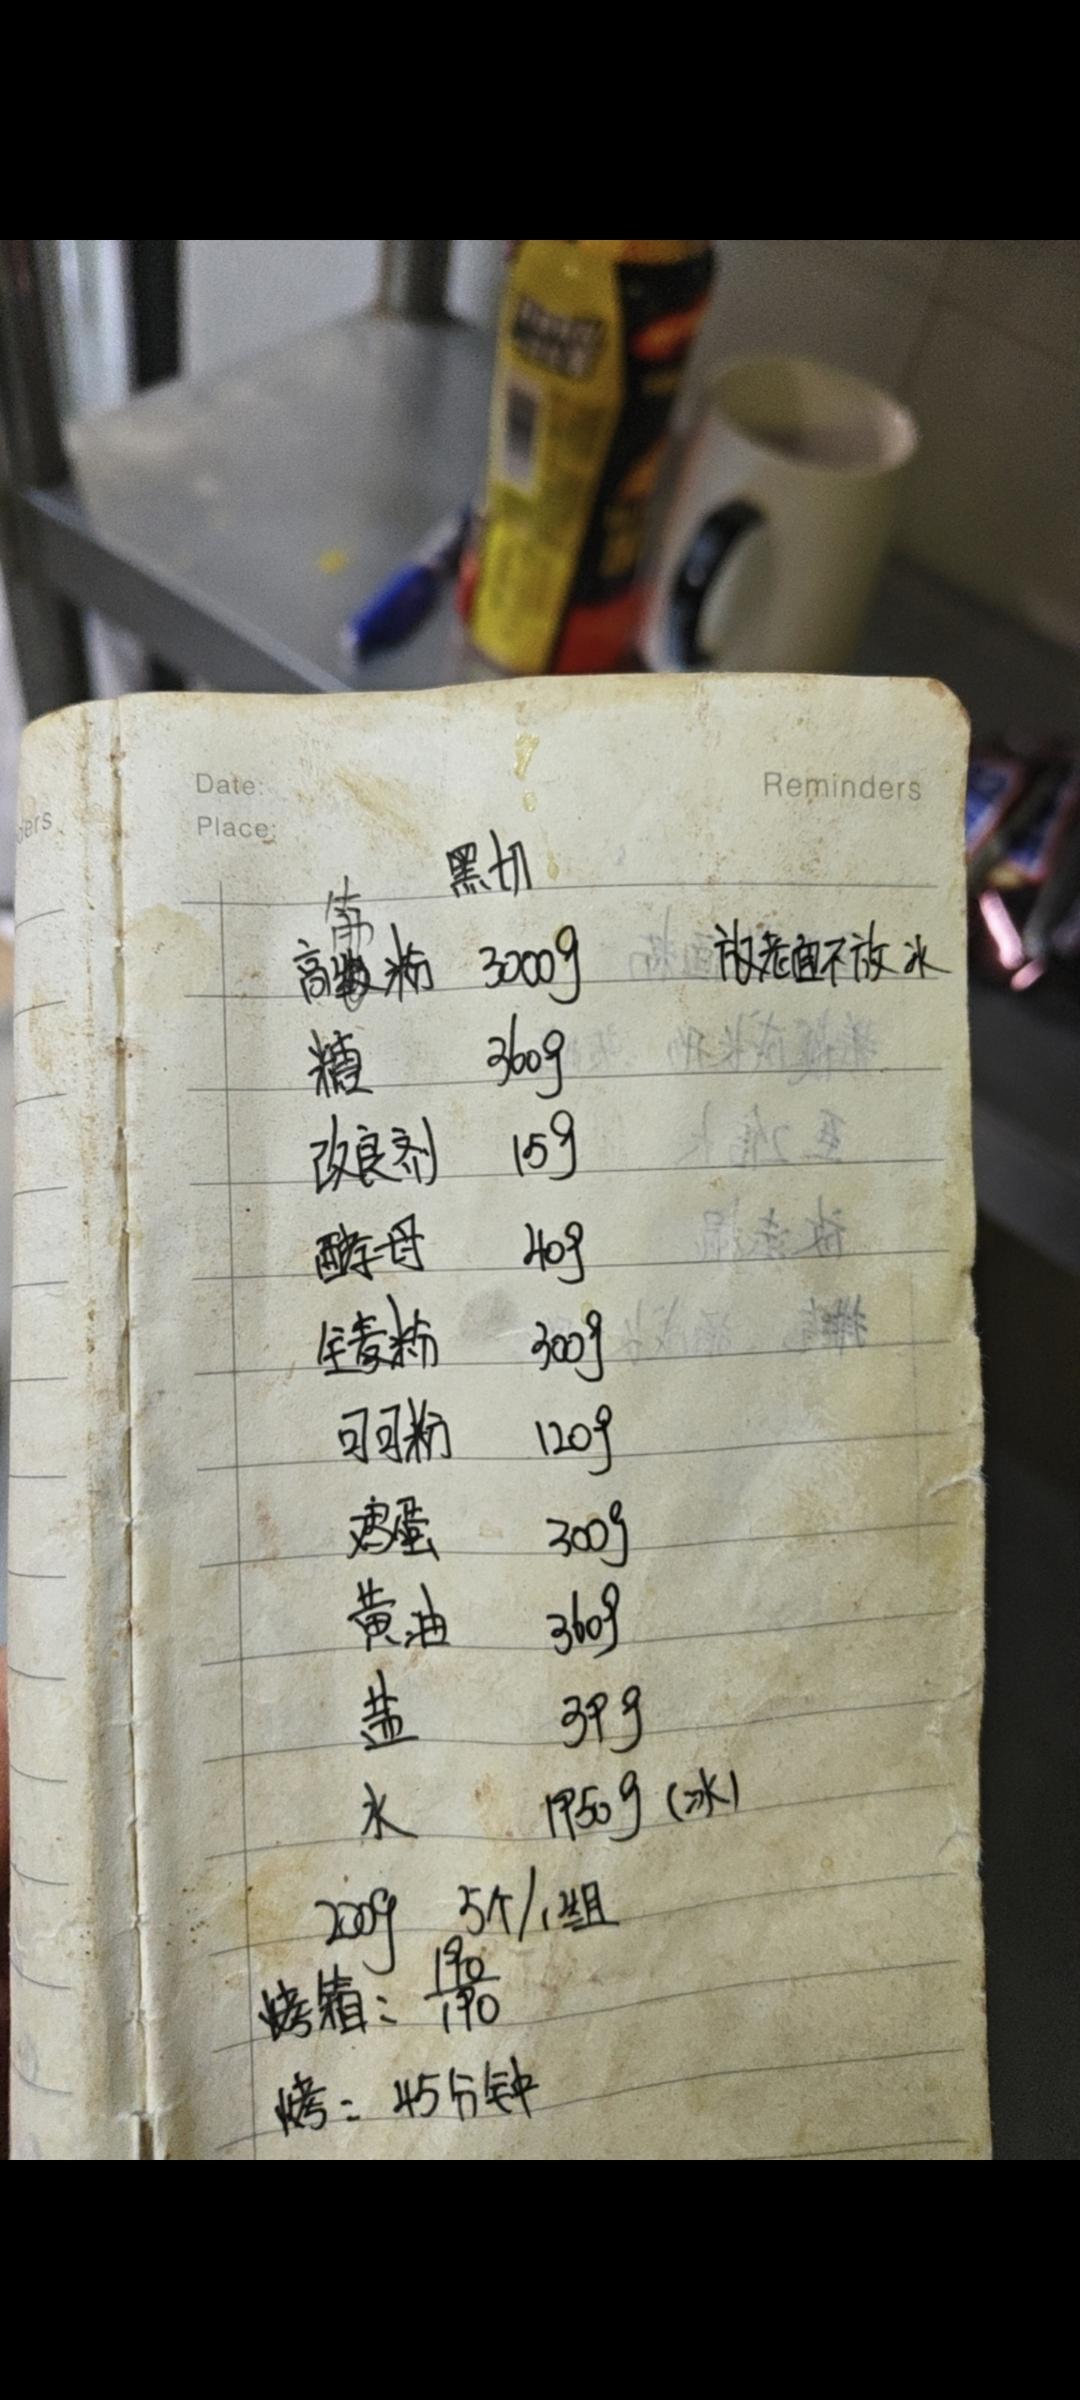 Date:
Reminders
Place:
黑切
高筋粉 3000g 放老面不放冰
糖 360g
改良剂 15g
酵母 40g
全麦粉 300g
可可粉 120g
鸡蛋 300g
黄油 360g
盐 39g
水 1950g (冰)
200g 5个/1组
烤箱: 190
190
烤: 45分钟